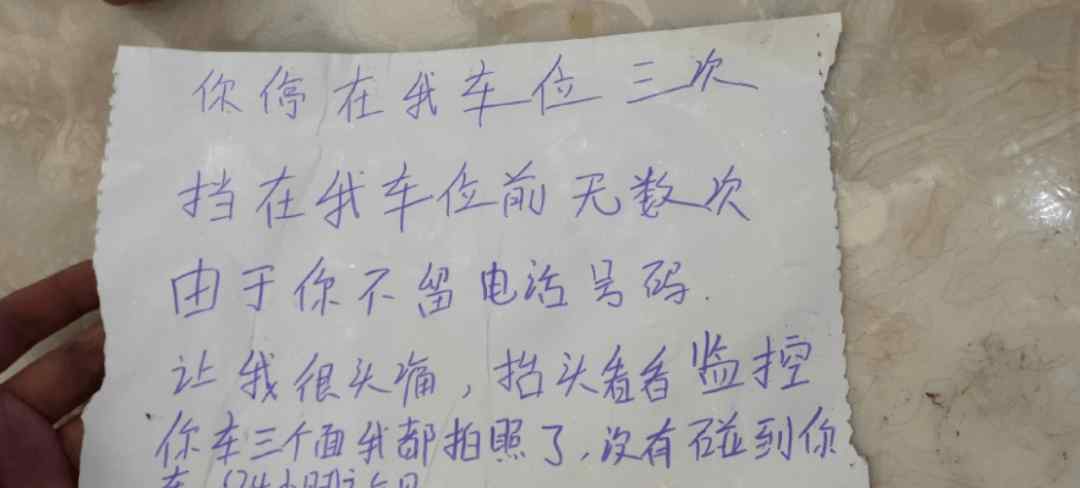 你停在我车位三次
挡在我车位前无数次
由于你不留电话号码.
让我很头痛，抬头看看监控
你车三个面我都拍照了，没有碰到你
车